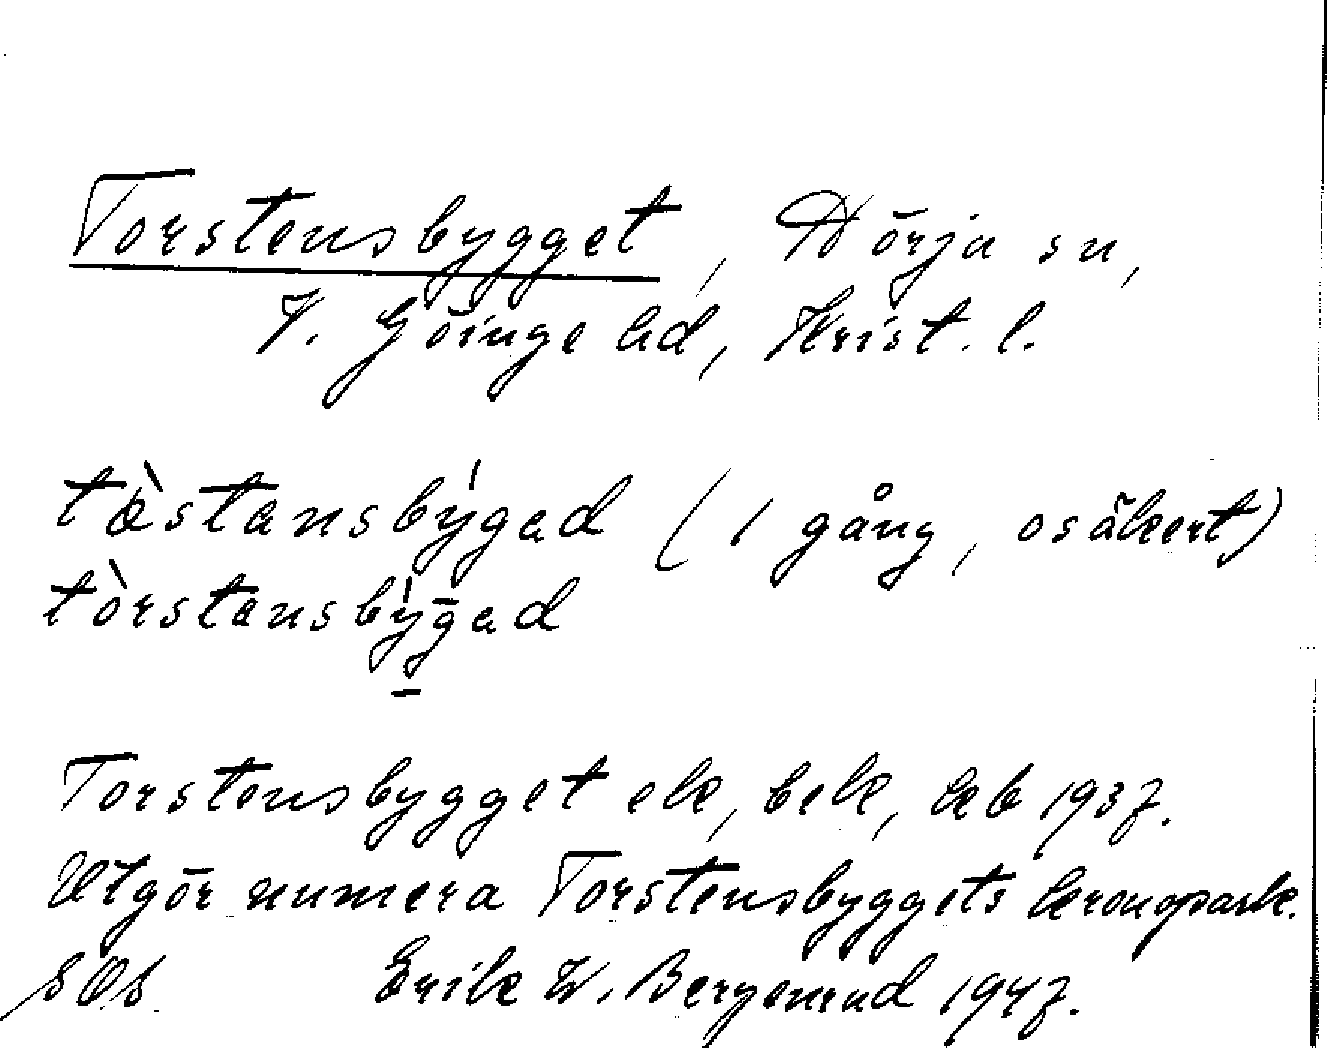 Torstensbygget, Hörja sn,
V. Göinge hd, Krist. l.
tæ̀stansbýgad (1 gång, osäkert)
tòrstansbýgad
Torstensbygget ek, bek, kb 1937.
Utgör numera Torstensbyggets kronopark.
Erik W. Bergenrud 1947.